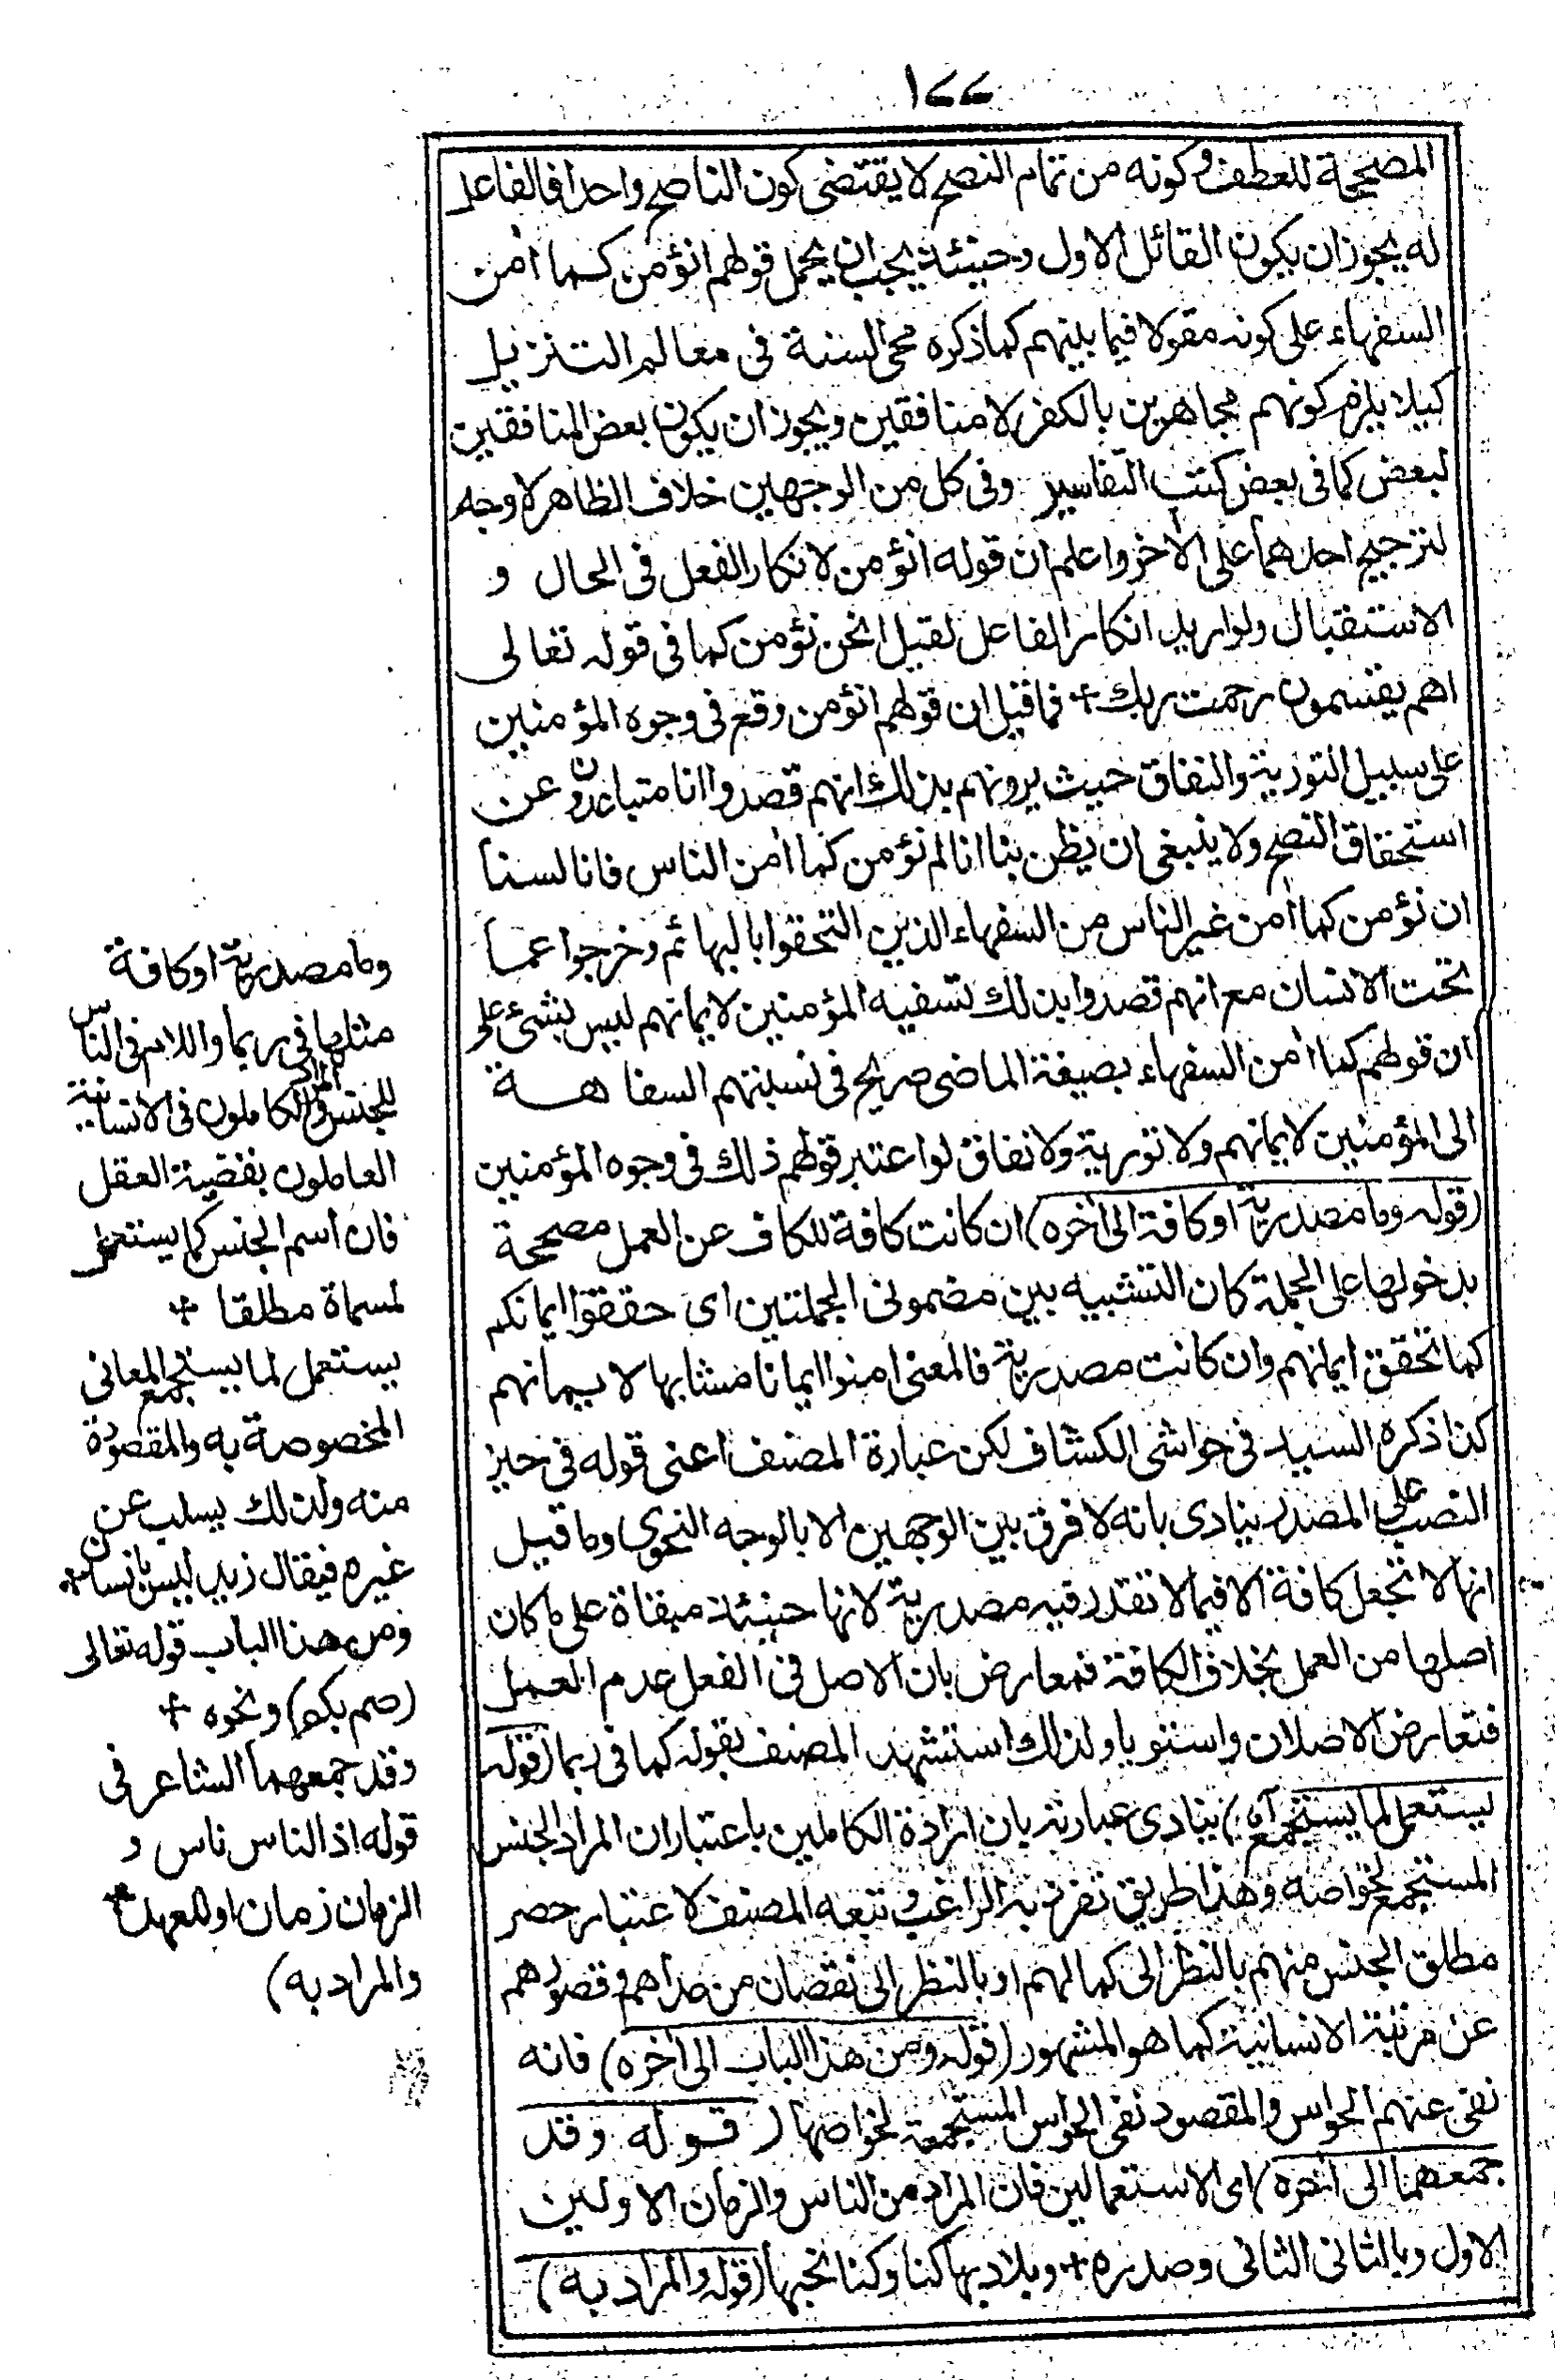 ١٧٧
المصححة للعطف وكونه من تمام النصح لا يقتضى كون الناصح واحدا فالفاعل
له يجوز ان يكون القائل الاول وحينئذ يجب ان يحمل قولهم انؤمن كما اٰمن
السفهاء على كونه مقولا فيما بينهم كما ذكره محى السنة فى معالم التنزيل
كيلا يلزم كونهم مجاهرين بالكفر لا منافقين ويجوز ان يكون بعض المنافقين
لبعض كما فى بعض كتب التفاسير وفى كل من الوجهين خلاف الظاهر لا وجه
لترجيح احدهما على الاٰخر واعلم ان قوله انؤمن لانكار الفعل فى الحال و
الاستقبال ولو اريد انكار الفاعل لقيل انحن نؤمن كما فى قوله تعالى
اهم يقسمون رحمت ربك + فما قيل ان قولهم انؤمن وقع فى وجوه المؤمنين
على سبيل التورية والنفاق حيث يرونهم بذلك انهم قصدوا انا متباعدون عن
استحقاق النصح ولا ينبغى ان يظن بنا انا لم نؤمن كما اٰمن الناس فانا لسنا
ان نؤمن كما اٰمن غير الناس من السفهاء الذين التحقوا بالبهائم وخرجوا عما
تحت الانسان مع انهم قصدوا بذلك تسفيه المؤمنين لايمانهم ليس بشئ على
ان قولهم كما اٰمن السفهاء بصيغة الماضى صريح فى نسبتهم السفاهة
الى المؤمنين لايمانهم ولا تورية ولا نفاق لو اعتبر قولهم ذلك فى وجوه المؤمنين
(قوله وما مصدرية او كافة الى اٰخره) ان كانت كافة للكاف عن العمل مصححة
بدخولها على الجملة كان التشبيه بين مضمونى الجملتين اى حققوا ايمانكم
كما تحقق ايمانهم وان كانت مصدرية فالمعنى اٰمنوا ايمانا مشابها لايمانهم
كذا ذكره السيد فى حواشى الكشاف لكن عبارة المصنف اعنى قوله فى حيز
النصب على المصدر ينادى بانه لا فرق بين الوجهين الا بالوجه النحوى وما قيل
انها لا تجعل كافة الا فيما لا تقدر فيه مصدرية لانها حينئذ مبقاة على ما كان
اصلها من العمل بخلاف الكافة فمعارض بان الاصل فى الفعل عدم العمل
فتعارض الاصلان واستويا ولذلك استشهد المصنف بقوله كما فى ربما (قوله
يستعمل لما يستجمع اٰه) ينادى عبارته بان ارادة الكاملين باعتبار ان المراد الجنس
المستجمع لخواصه وهذا طريق تفرد به الراغب وتبعه المصنف لا عتبار حصر
مطلق الجنس منهم بالنظر الى كمالهم او بالنظر الى نقصان من عداهم وقصورهم
عن مرتبة الانسانية كما هو المشهور (قوله ومن هذا الباب الى اٰخره) فانه
نفى عنهم الحواس والمقصود نفى الحواس المستجمعة لخواصها (قوله وقد
جمعهما الى اٰخره) اى الاستعمالين فان المراد من الناس والزمان الاولين
الاول وبالثانى الثانى وصدره + وبلاد بها كنا وكنا نحبها (قوله والمراد به)
وما مصدرية او كافة
مثلها فى ربما واللام فى الناس
للجنس والمراد الكاملون فى الانسانية
العاملون بقضية العقل
فان اسم الجنس كما يستعمل
لمسماة مطلقا +
يستعمل لما يستجمع المعانى
المخصوصة به والمقصودة
منه ولذلك يسلب عن
غيره فيقال زيد ليس بانسان +
ومن هذا الباب قوله تعالى
(صم بكم) ونحوه +
وقد جمعهما الشاعر فى
قوله اذ الناس ناس و
الزمان زمان او للعهد +
والمراد به)